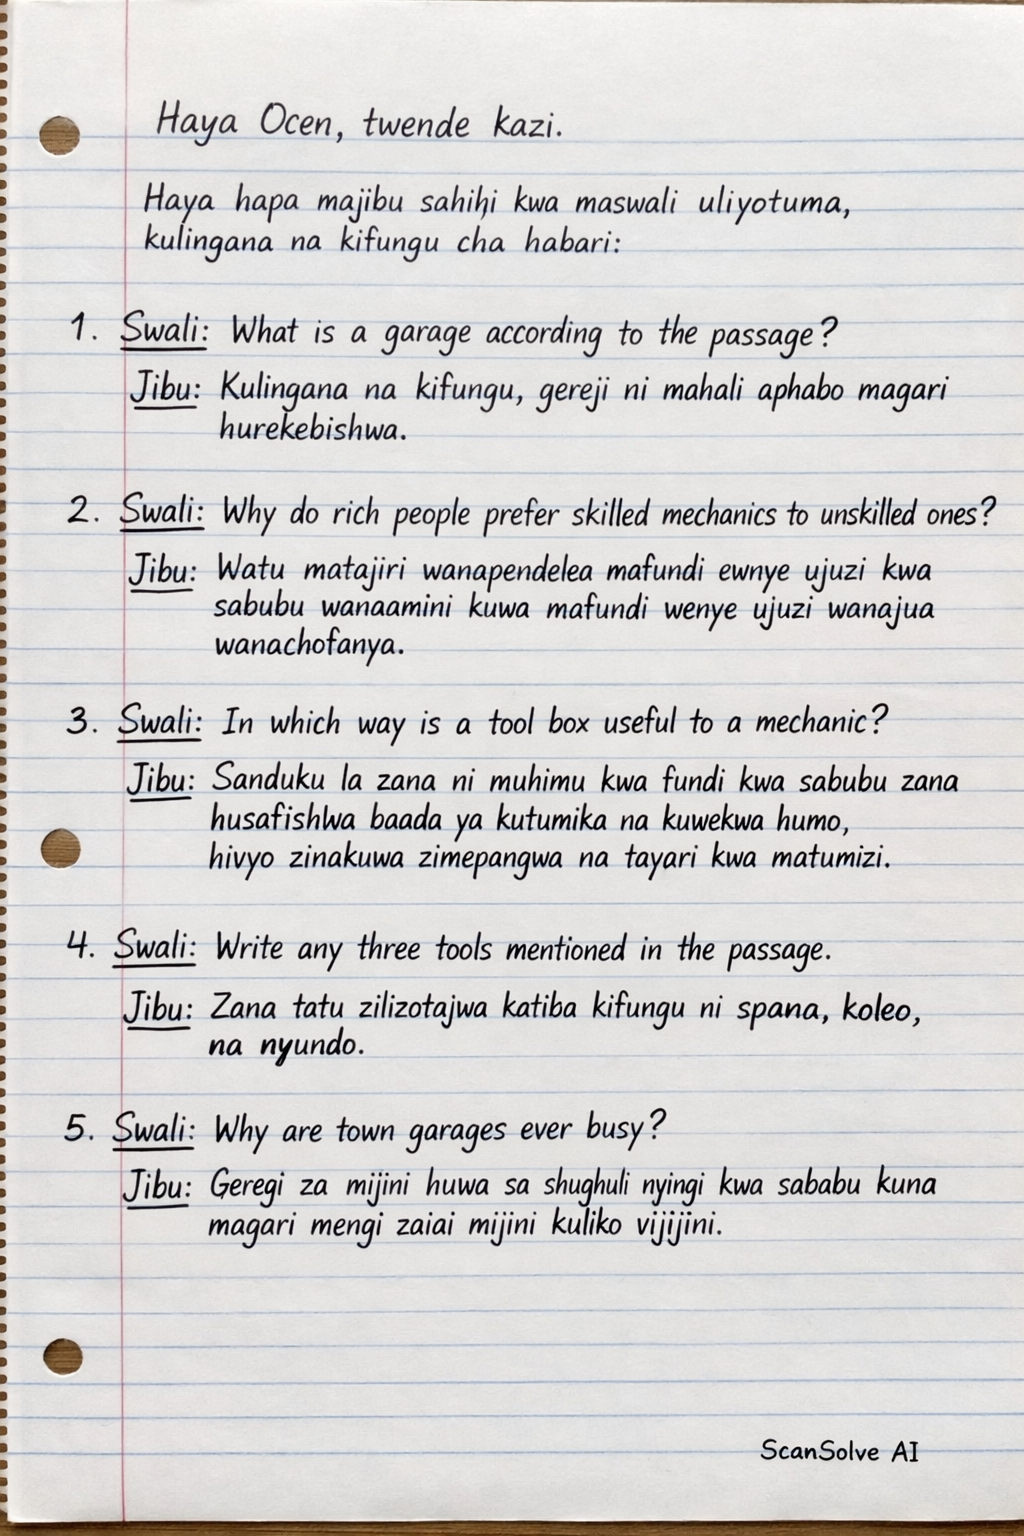 Haya Ocen, twende kazi.
Haya hapa majibu sahihi kwa maswali uliyotuma,
kulingana na kifungu cha habari:
1. Swali: What is a garage according to the passage?
Jibu: Kulingana na kifungu, gereji ni mahali aphabo magari
hurekebishwa.
2. Swali: Why do rich people prefer skilled mechanics to unskilled ones?
Jibu: Watu matajiri wanapendelea mafundi ewnye ujuzi kwa
sabubu wanaamini kuwa mafundi wenye ujuzi wanajua
wanachofanya.
3. Swali: In which way is a tool box useful to a mechanic?
Jibu: Sanduku la zana ni muhimu kwa fundi kwa sabubu zana
husafishlwa baada ya kutumika na kuwekwa humo,
hivyo zinakuwa zimepangwa na tayari kwa matumizi.
4. Swali: Write any three tools mentioned in the passage.
Jibu: Zana tatu zilizotajwa katiba kifungu ni spana, koleo,
na nyundo.
5. Swali: Why are town garages ever busy?
Jibu: Geregi za mijini huwa sa shughuli nyingi kwa sababu kuna
magari mengi zaiai mijini kuliko vijijini.
ScanSolve AI